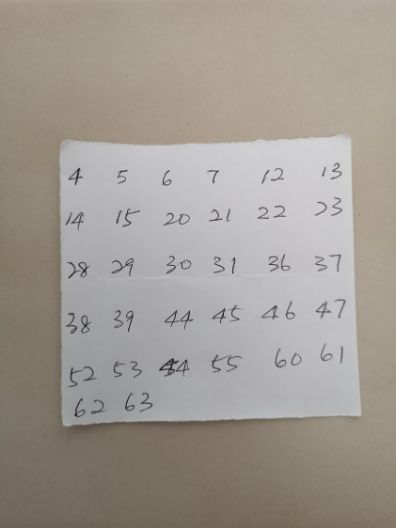 4 5 6 7 12 13
14 15 20 21 22 23
28 29 30 31 36 37
38 39 44 45 46 47
52 53 54 55 60 61
62 63